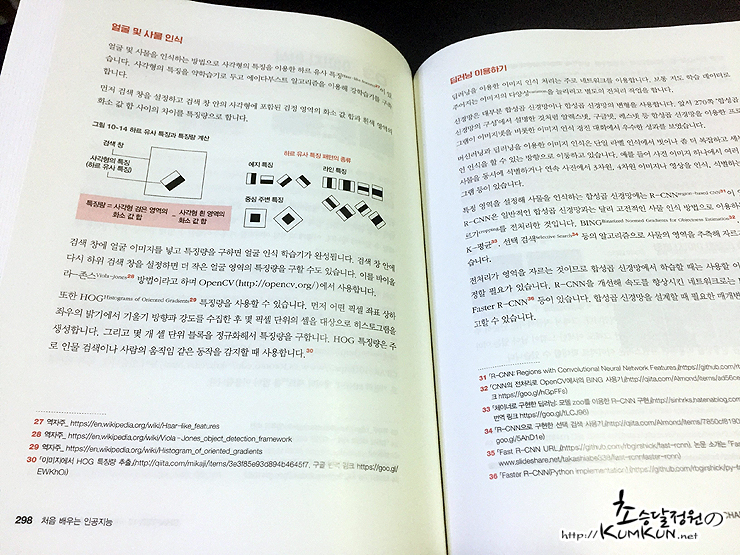 얼굴 및 사물 인식
얼굴 및 사물을 인식하는 방법으로 사각형의 특징을 이용한 하르 유사 특징
습니다. 사각형의 특징을 약학습기로 두고 에이다부스트 알고리즘을 이용해 강학습기를 구축
합니다.
먼저 검색 창을 설정하고 검색 창 안의 사각형에 포함된 검정 영역의 화소 값 합과 흰색 영역의
화소 값 합 사이의 차이를 특징량으로 합니다.
그림 10-14 하르 유사 특징과 특징량 계산
검색 창
사각형의 특징
(하르 유사 특징)
특징량 = 사각형 검은 영역의 화소 값 합 - 사각형 흰 영역의 화소 값 합
하르 유사 특징 패턴의 종류
에지 특징
라인 특징
중심 주변 특징
검색 창에 얼굴 이미지를 넣고 특징량을 구하면 얼굴 인식 학습기가 완성됩니다. 검색 창 안에
다시 하위 검색 창을 설정하면 더 작은 얼굴 영역의 특징량을 구할 수도 있습니다. 이를 바이올
라-존스Viola-Jones28 방법이라고 하며 OpenCV(http://opencv.org/)에서 사용합니다.
또한 HOGHistograms of Oriented Gradients29 특징량을 사용할 수 있습니다. 먼저 어떤 픽셀 좌표 상하
좌우의 밝기에서 기울기 방향과 강도를 수집한 후 몇 픽셀 단위의 셀을 대상으로 히스토그램을
생성합니다. 그리고 몇 개 셀 단위 블록을 정규화해서 특징량을 구합니다. HOG 특징량은 주
로 인물 검색이나 사람의 움직임 같은 동작을 감지할 때 사용합니다.30
27 역자주_ https://en.wikipedia.org/wiki/Haar-like_features
28 역자주_ https://en.wikipedia.org/wiki/Viola-Jones_object_detection_framework
29 역자주_ https://en.wikipedia.org/wiki/Histogram_of_oriented_gradients
30 「이미지에서 HOG 특징량 추출」(http://qiita.com/mikaji/items/3e3f85e93d894b4645f7, 구글 번역 링크 https://goo.gl/
EWKhOi)
298 처음 배우는 인공지능
딥러닝 이용하기
딥러닝을 이용한 이미지 인식 처리는 주로 네트워크를 이용합니다. 보통 지도 학습 데이터로
주어지는 이미지의 다양성을 늘리려고 별도의 전처리 작업을 합니다.
신경망은 대부분 합성곱 신경망이나 합성곱 신경망의 변형을 사용합니다. 앞서 270쪽 '합성곱
신경망의 구성'에서 설명한 것처럼 알렉스넷, 구글넷, 레스넷 등 합성곱 신경망을 이용한 프로
그램이 이미지넷을 비롯한 이미지 인식 경진 대회에서 우수한 성과를 보였습니다.
머신러닝과 딥러닝을 이용한 이미지 인식은 단일 라벨 인식에서 벗어나 좀 더 복잡하고 세
언 인식을 할 수 있는 방향으로 이동하고 있습니다. 예를 들어 사진 이미지 하나에서 여러
사물을 동시에 식별하거나 연속 사진에서 3차원, 4차원 이미지나 영상을 인식, 식별하는
그램 등이 있습니다.
특정 영역을 설정해 사물을 인식하는 합성곱 신경망에는 R-CNNregion-based CNN31이
R-CNN은 일반적인 합성곱 신경망과는 달리 고전적인 사물 인식 방법으로 이용하
르기cropping를 전처리한 것입니다. BINGBinarized Normed Gradients for Objectness Estimation32
K-평균33, 선택 검색Selective Search34 등의 알고리즘으로 사물의 영역을 추측해 자르
습니다.
전처리가 영역을 자르는 것이므로 합성곱 신경망에서 학습할 때는 사용할 이
정할 필요가 있습니다. R-CNN을 개선해 속도를 향상시킨 네트워크로는
Faster R-CNN36 등이 있습니다. 합성곱 신경망을 설계할 때 필요한 매개변
고할 수 있습니다.
31 「R-CNN: Regions with Convolutional Neural Network Features」(https://github.com/
32 「CNN의 전처리로 OpenCV에서의 BING 사용기」(http://qiita.com/Almond/items/ad56ce
크 https://goo.gl/hGpFFs)
33 「체이너로 구현한 딥러닝: 모델 zoo를 이용한 R-CNN 구현」(http://sinhrks.hatenablog.com
번역 링크 https://goo.gl/tLCJ96)
34 「R-CNN으로 구현한 선택 검색 사용기」(http://qiita.com/Almond/items/7850cf8190
goo.gl/5AhD1e)
35 「Fast R-CNN URL」(https://github.com/rbgirshick/fast-rcnn). 논문 소개는 「Fas
www.slideshare.net/takashiabe338/fast-rcnnfaster-rcnn)
36 「Faster R-CNN(Python implementation)」(https://github.com/rbgirshick/py-fa
CHA
초승달정원の
http://KUMKUN.net